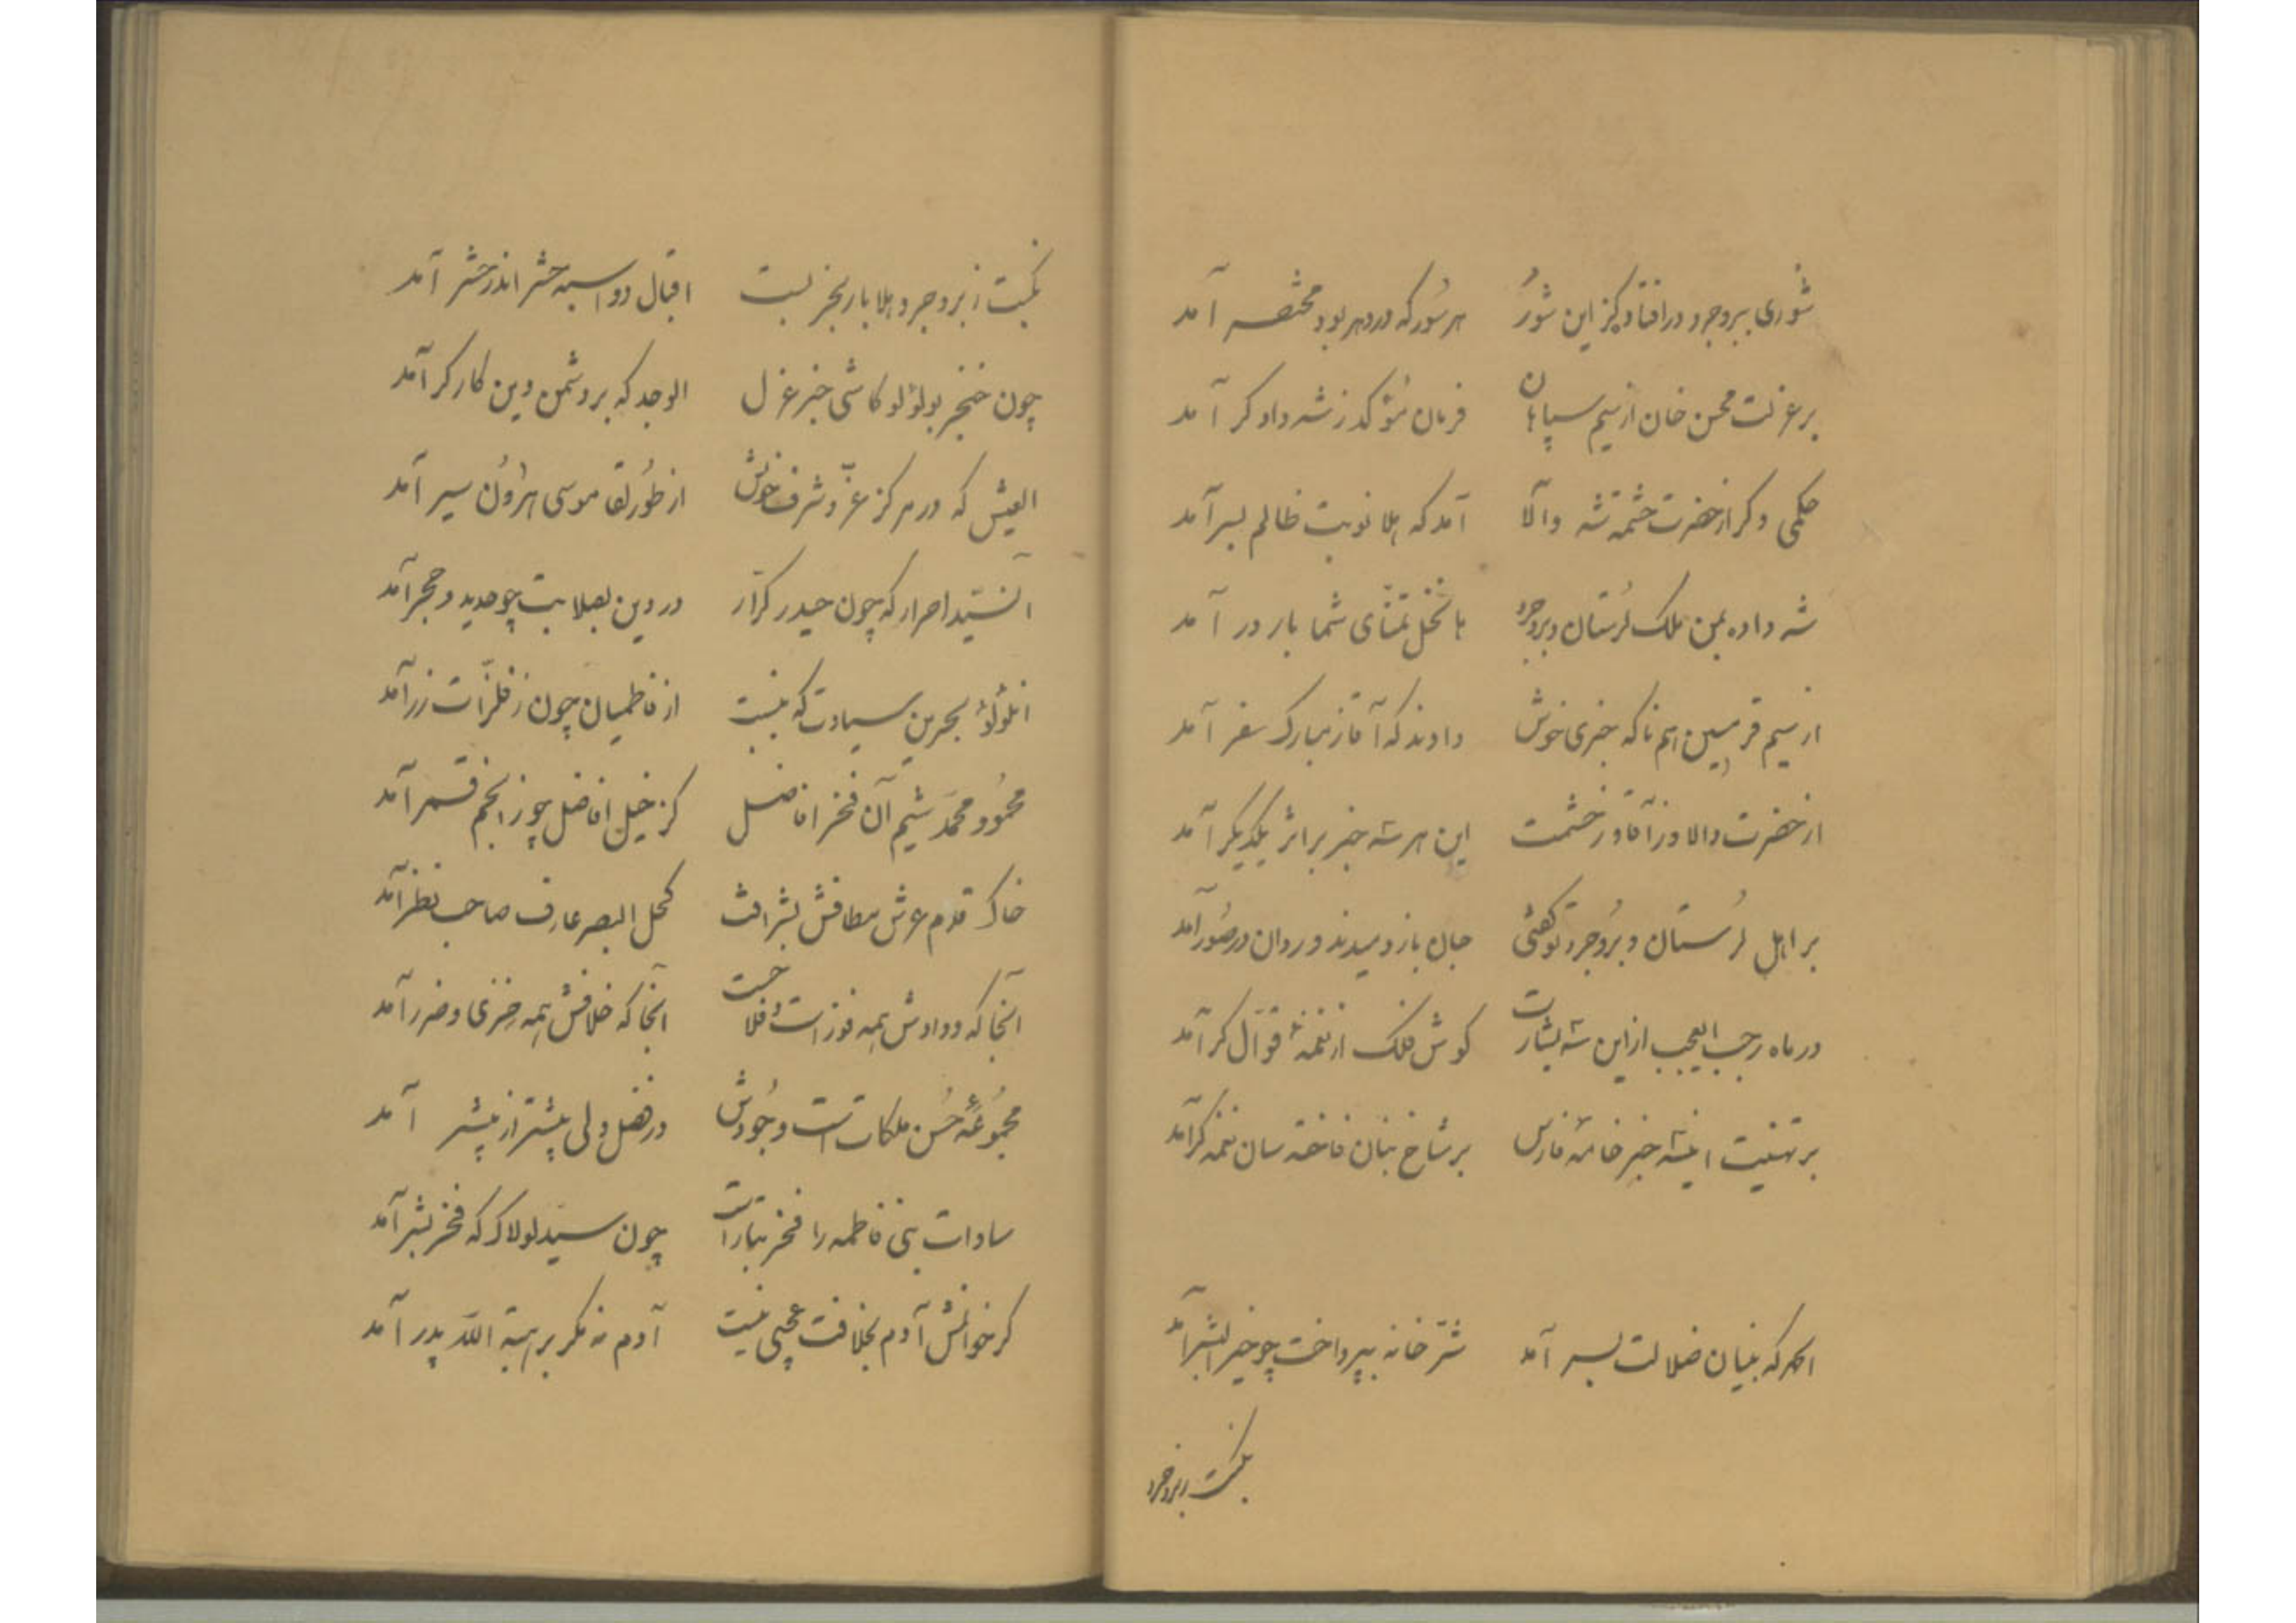 شوری ببروجرد در افتاد کز این شور هر سور که در دهر بود مختصر آمد
بر عزلت محسن خان از سیم سپاهان فرمان مؤکد ز شه دادکر آمد
حکمی دکر از حضرت حشمة شه والا آمد که هلا نوبت ظالم بسر آمد
شه داده بمن ملک لرستان و بروجرد با نخل تمنّای شما بارور آمد
از سیم قرمیسین هم ناکه خبری خوش دادند که آقا ز مبارک سفر آمد
از حضرت والا وز آقا وز حشمت این هر سه خبر بر اثر یکدیکر آمد
بر اهل لرستان و بروجرد تو کفتی جان باز دمیدند و روان در صور آمد
در ماه رجب العجب از این سه بشارت کوش فلک از نغمهٔ قوّال کر آمد
بر تهنیت اینسه خبر خامهٔ فارس بر شاخ بنان فاخته سان نغمه کر آمد
که بنیان ضلالت بسر آمد شرّ خانه بپرداخت چو خیر البشر آمد
نکبت ز بروجرد
نکبت ز بروجرد هلا بار بخر بست اقبال دو اسبه حشر اندر حشر آمد
چون خنجر بولؤلو کاشی خبر عزل الوجد که بر دشمن دین کارکر آمد
العیش که در مرکز عزّ و شرف خویش از طور لقا موسی هارون سیر آمد
آنسیّد احرار که چون حیدر کرّار در دین بصلابت چو حدید و حجر آمد
انلؤلؤ بحرین سیادت که بنسبت از فاطمیان چون ز فلزّات زر آمد
محمود محمّد شیم آن فخر افاضل کز خیل افاضل چو ز انجم قمر آمد
خاک قدم عرش مطافش بشرافت کحل البصر عارف صاحب نظر آمد
آنجا که ودادش همه فوز است و فلاحست آنجا که خلافش همه خزی و ضرر آمد
مجموعهٔ حسن ملکات است وجودش در فضل ولی بیشتر از بیشتر آمد
سادات بنی فاطمه را فخر تبار است چون سیّد لولاک که فخر بشر آمد
کر خوانمش آدم بخلافت عجبی نیست آدم نه مکر بر هبة اللّه پدر آمد